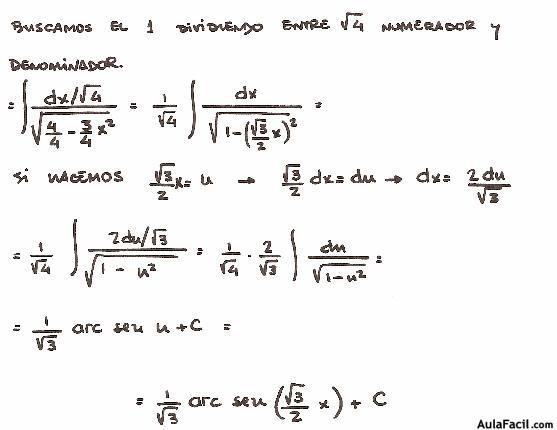 BUSCAMOS EL 1 DIVIDIENDO ENTRE √4 NUMERADOR y
DENOMINADOR.
= ∫ (dx/√4) / √(4/4 - 3/4 x²) = 1/√4 ∫ dx / √(1-(√3/2 x)²) =
SI HACEMOS √3/2 x = u → √3/2 dx = du → dx = 2du/√3
= 1/√4 ∫ (2du/√3) / √(1 - u²) = 1/√4 · 2/√3 ∫ du / √(1-u²) =
= 1/√3 arc sen u + C =
= 1/√3 arc sen (√3/2 x) + C
AulaFacil.com